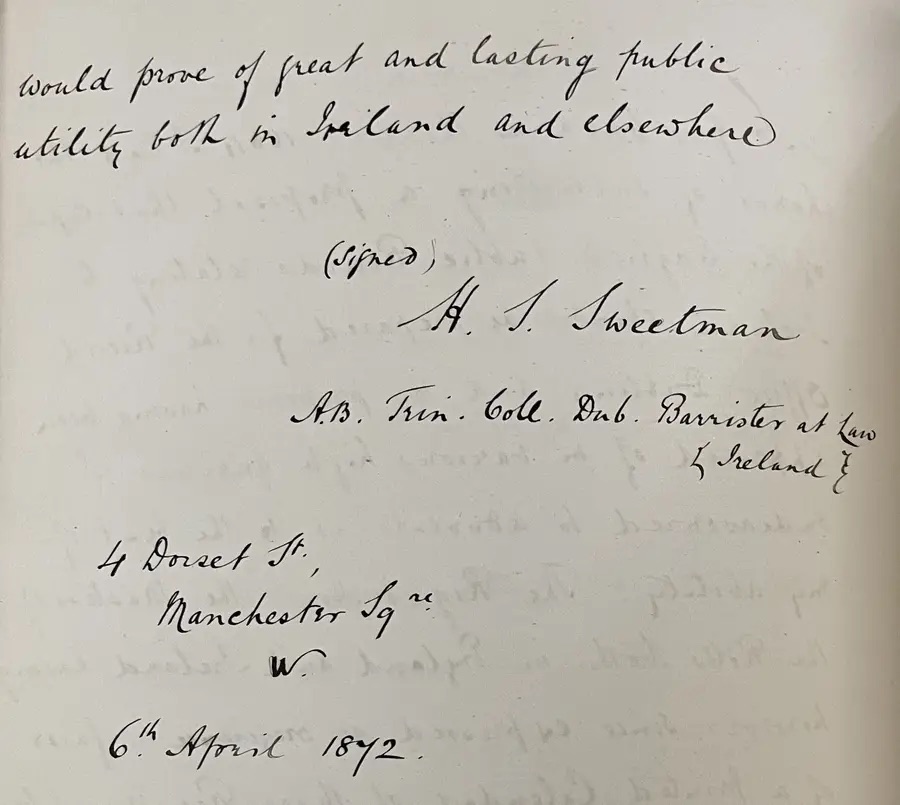 would prove of great and lasting public
utility both in Ireland and elsewhere
(signed)
H. S. Sweetman
A.B. Trin. Coll. Dub. Barrister at Law
{Ireland}
4 Dorset St.,
Manchester Sqre.
W.
6th. April 1872.